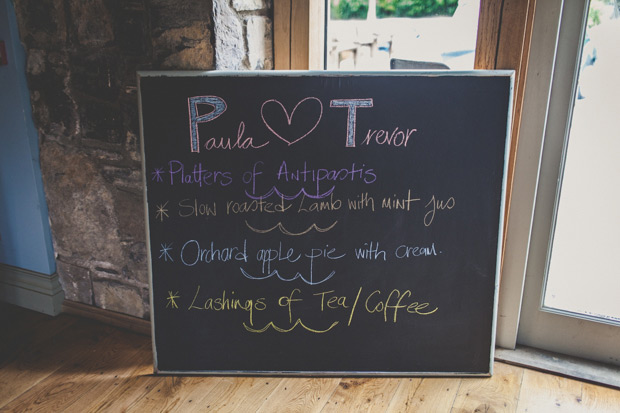 Paula ♡ Trevor
* Platters of Antipastis
* Slow roasted Lamb with mint jus
* Orchard apple pie with cream.
* Lashings of Tea/Coffee